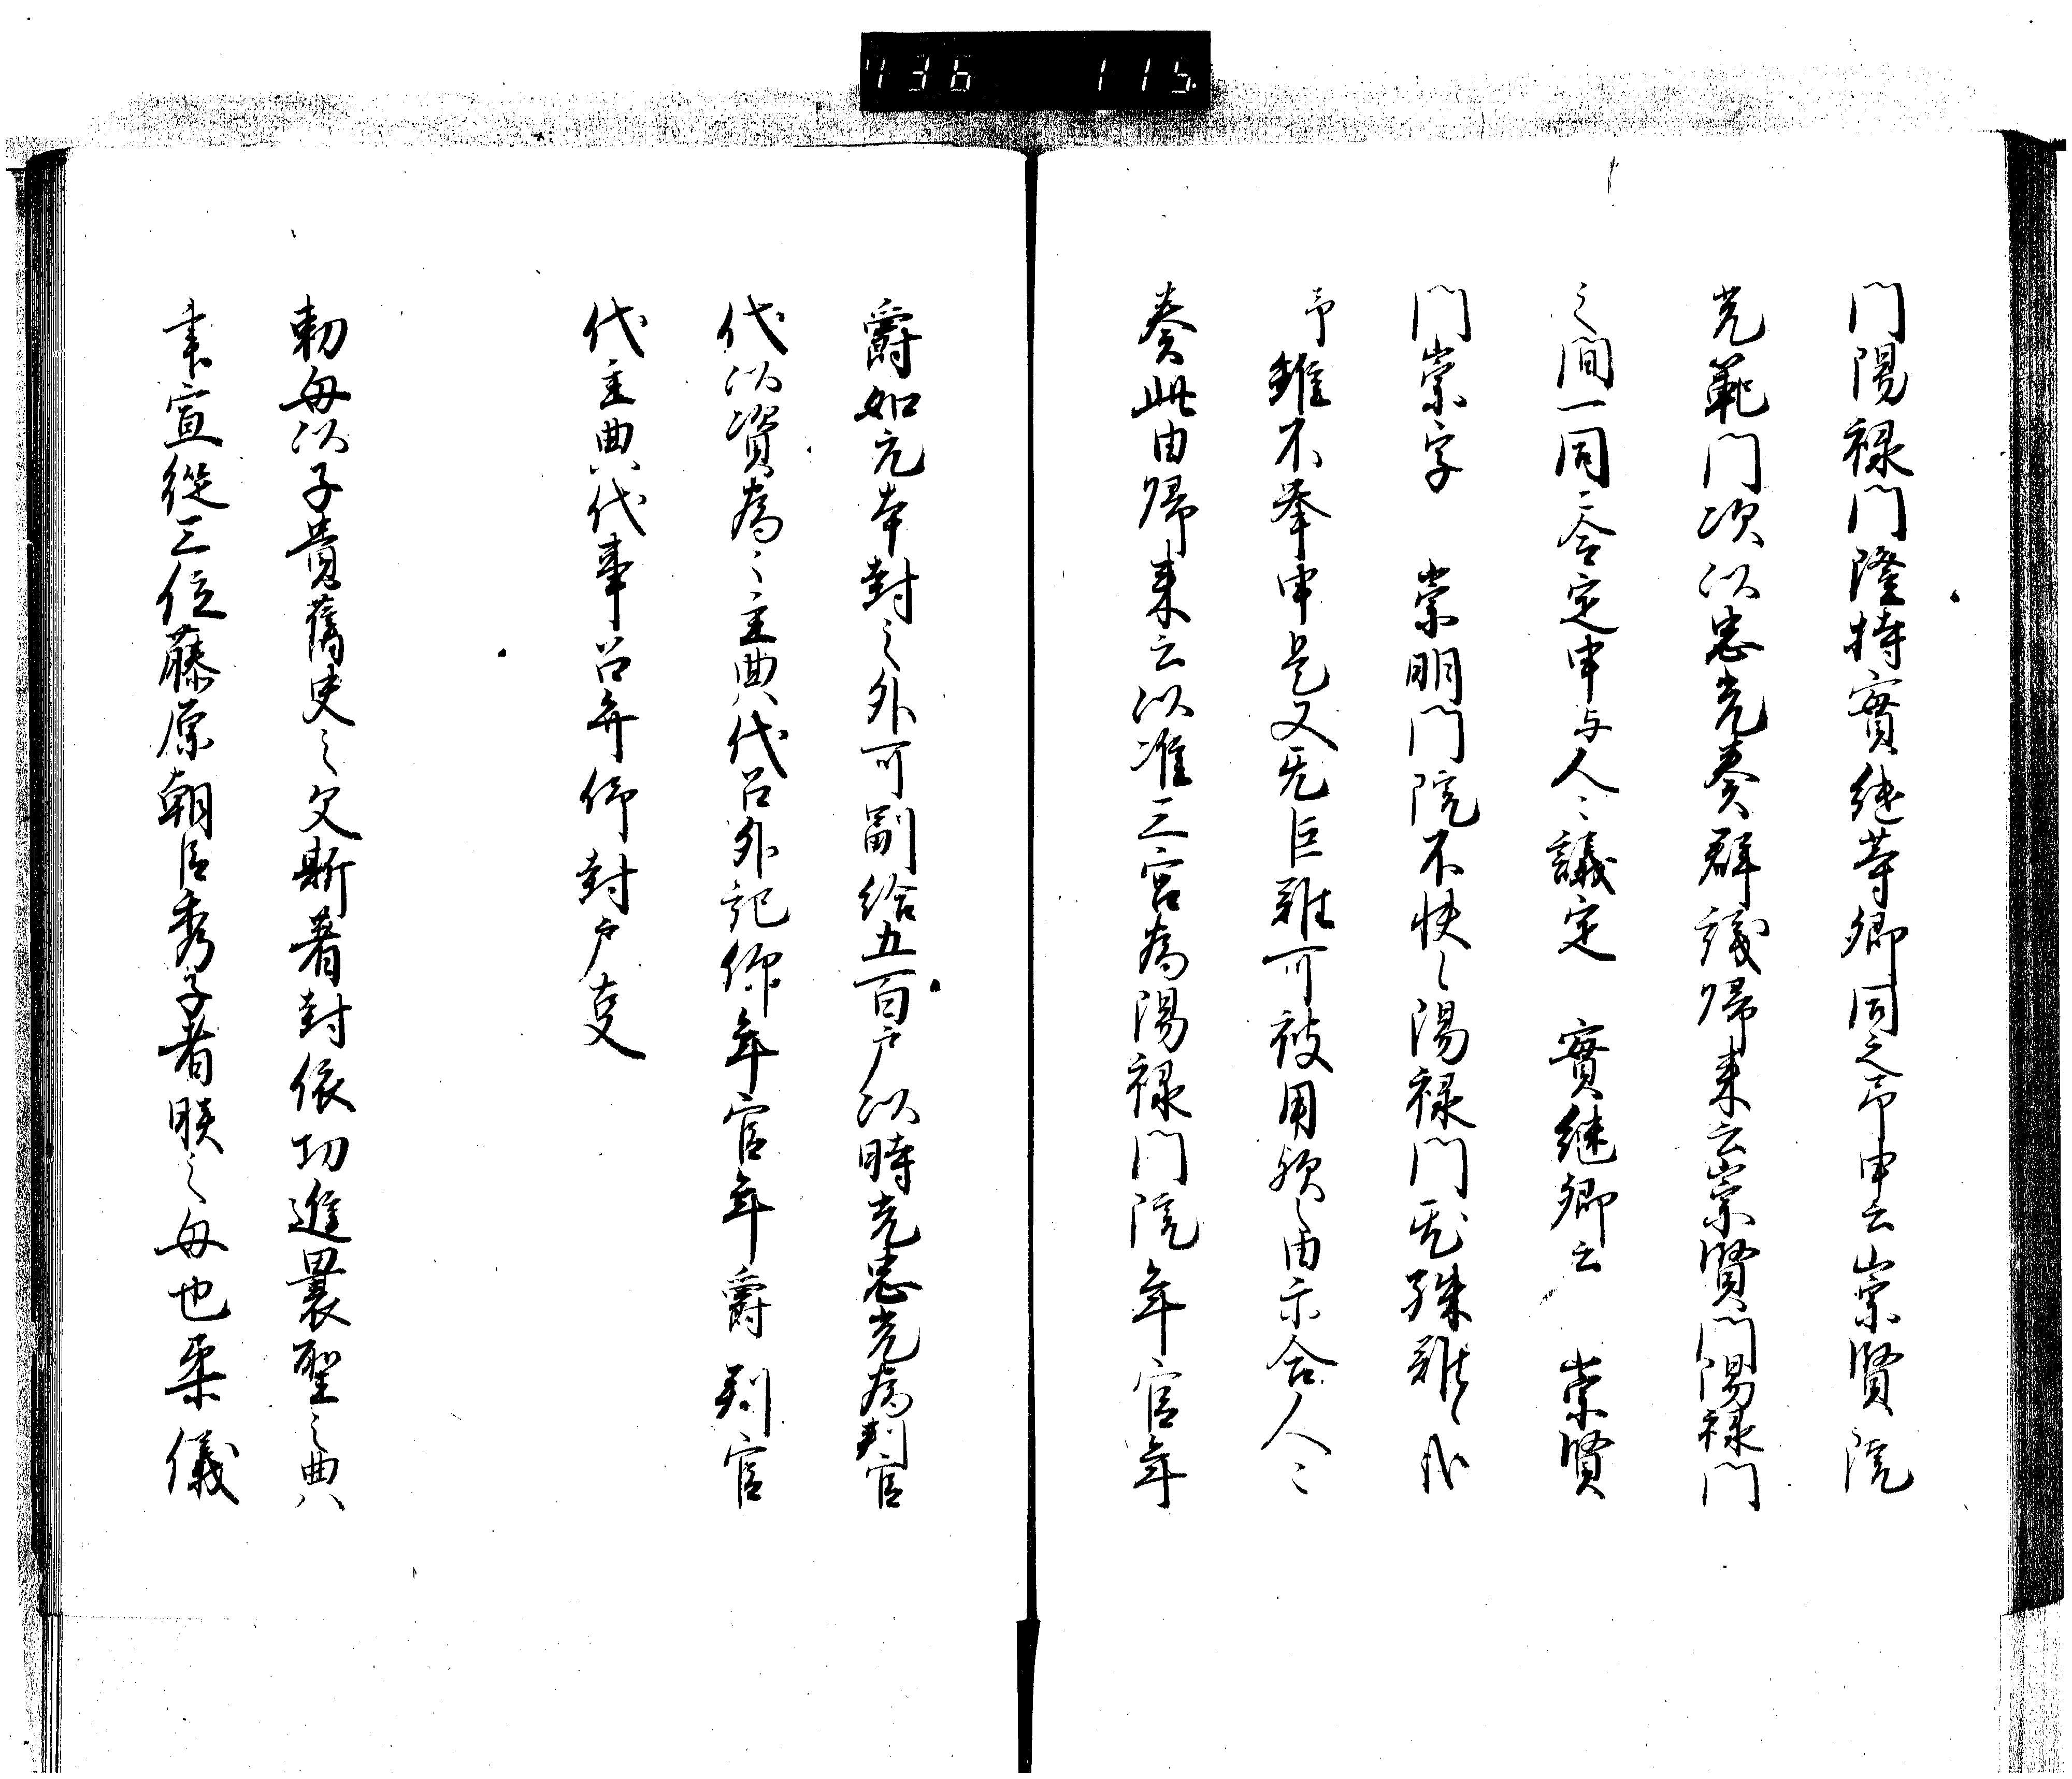 736 115
門陽禄門隆持實継等卿同之予申云崇賢院
光範門次以忠光奏群議帰来云崇賢門陽禄門
之間一同ニ令定申与人ミ議定 實継卿云 崇賢
門崇字 崇明門院不快ミ陽禄門无殊難ミ
予雖不挙申是又无巨難可被用歟之由示合人ミ
奏此由帰来云以准三宮為陽禄門院年官年
爵如元本封之外可副給五百戸以時光忠光為判官
代以資為ミ主典代召外記仰年官年爵判官
代主典代事召弁仰封戸事
勅母以子貴舊史之文斯著封依功進曩聖之典
聿宣従三位藤原朝臣秀子者朕之母也柔儀